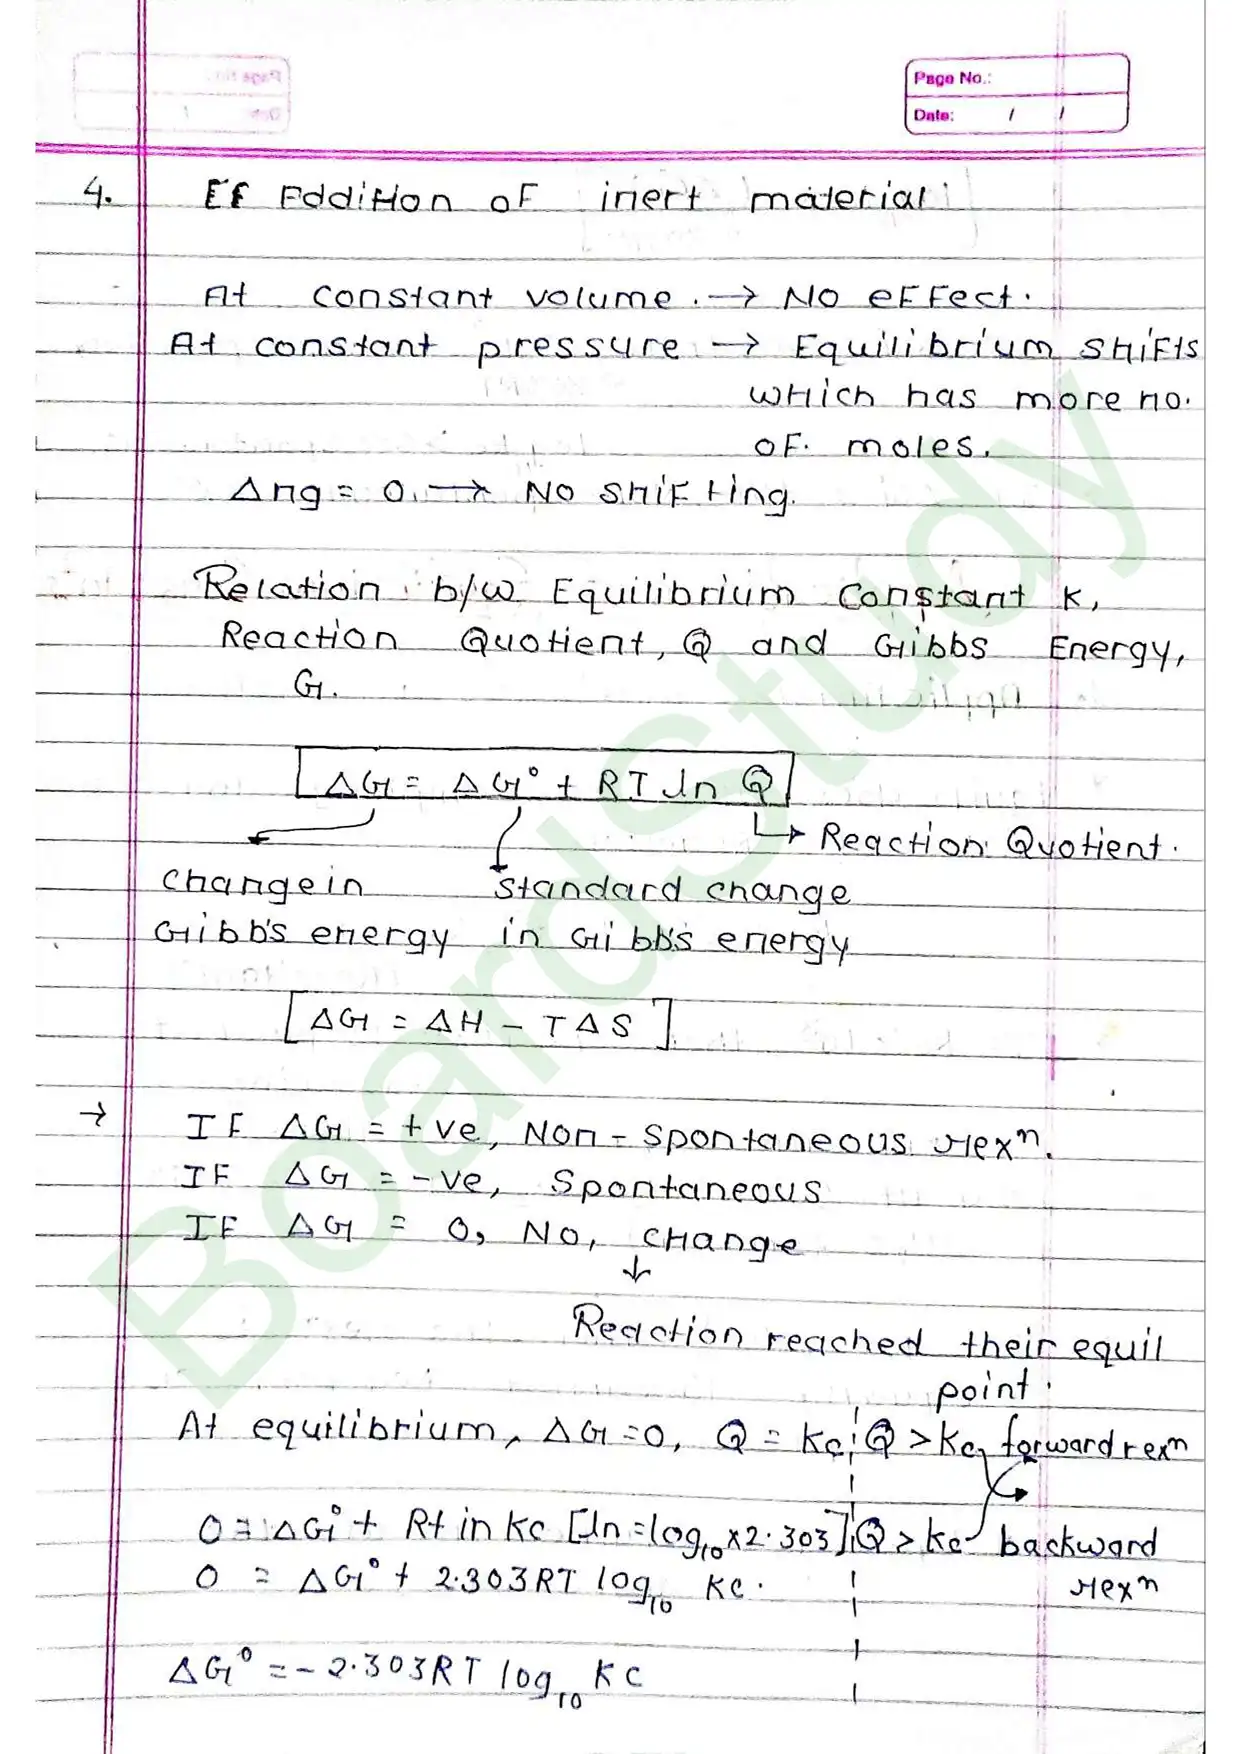 Page No.:
Date: / /
4. Ef Eddition of inert material
At constant volume. → No effect.
At constant pressure → Equilibrium shifts
which has more no.
of. moles.
Δng = 0. → No shifting.
Relation b/w Equilibrium Constant K,
Reaction Quotient, Q and Gibbs Energy,
G.
ΔG = ΔG° + RT ln Q
Reaction Quotient.
change in standard change
Gibb's energy in Gibb's energy
[ΔG = ΔH - TΔS]
→ If ΔG = +ve, Non-spontaneous rexⁿ.
If ΔG = -ve, Spontaneous
If ΔG = 0, No, change
↓
Reaction reached their equil
point.
At equilibrium, ΔG = 0, Q = Kc, Q > Kc, forward rexⁿ
0 = ΔG° + Rt in Kc [ln = log₁₀ x 2.303] Q > Kc backward
0 = ΔG° + 2.303RT log₁₀ Kc. rexⁿ
ΔG° = - 2.303RT log₁₀ KC
BoardStudy